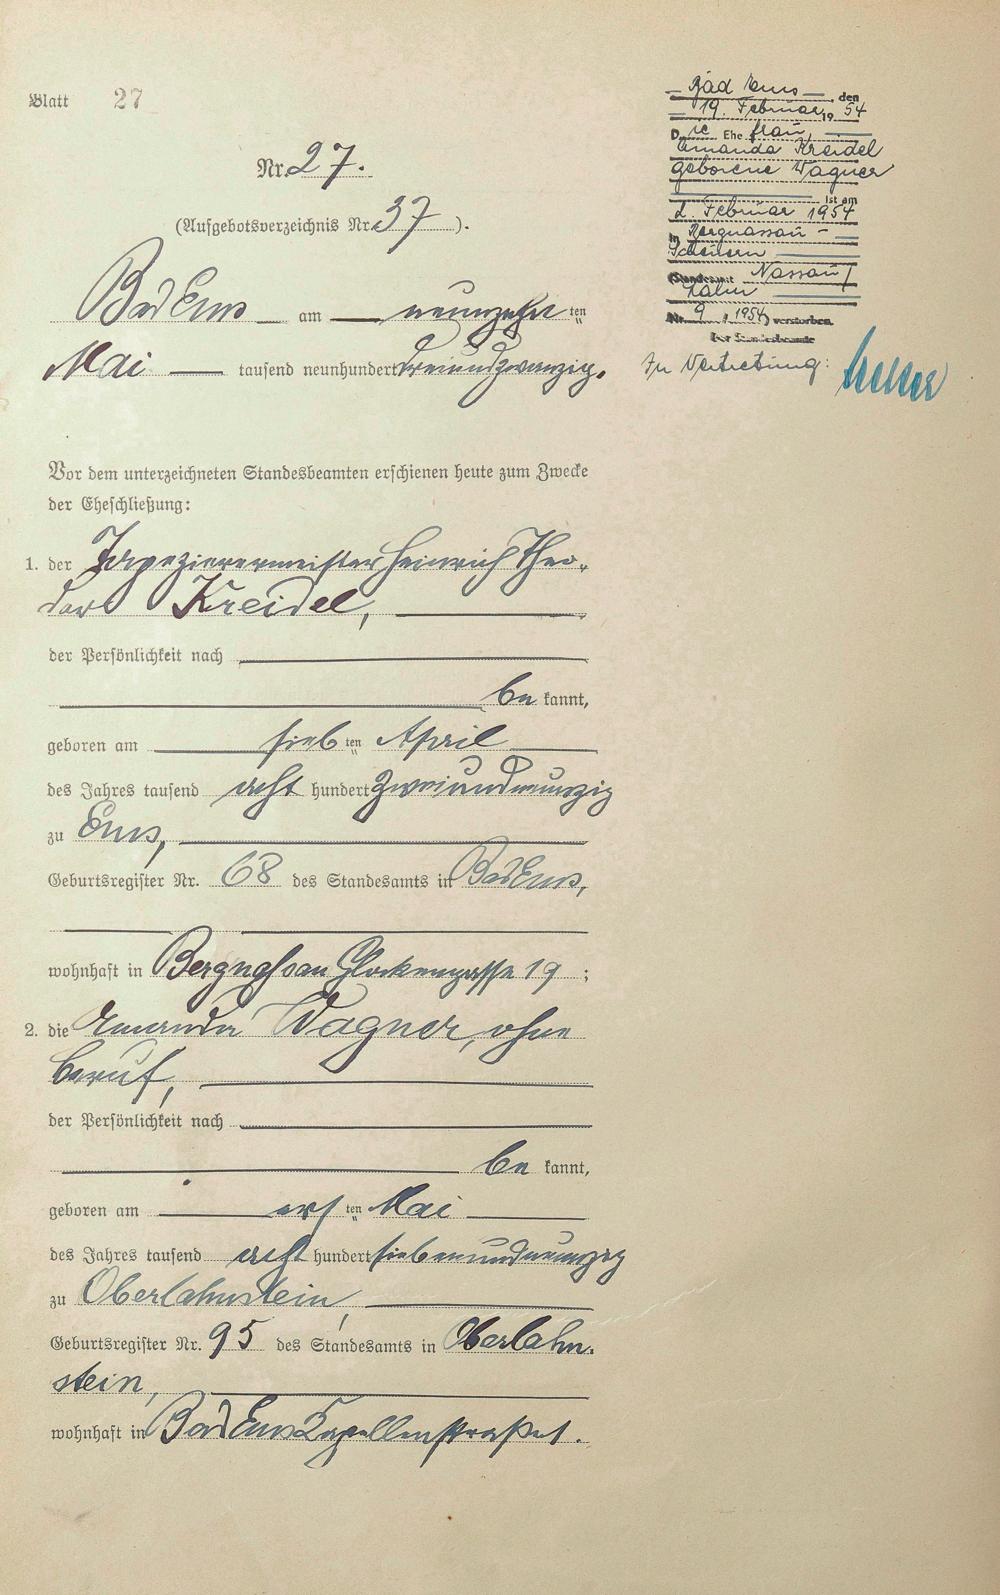 Blatt 27
Nr. 27.
(Aufgebotsverzeichnis Nr. 37).
Bad Ems am neunzehn ten
Mai tausend neunhundert dreiundzwanzig.
Vor dem unterzeichneten Standesbeamten erschienen heute zum Zwecke
der Eheschließung:
1. der Tapezierermeister Heinrich Theo-
dor Kreidel,
der Persönlichkeit nach
be kannt,
geboren am sieb ten April
des Jahres tausend acht hundert zweiundneunzig
zu Ems,
Geburtsregister Nr. 68 des Standesamts in Bad Ems,
wohnhaft in Bergnassau Glockengasse 19;
2. die Amanda Wagner, ohne
Beruf,
der Persönlichkeit nach
be kannt,
geboren am ers ten Mai
des Jahres tausend acht hundert siebenundneunzig
zu Oberlahnstein,
Geburtsregister Nr. 95 des Standesamts in Oberlahn-
stein,
wohnhaft in Bad Ems Kapellenstraße 1.
Bad Ems, den
19. Februar 19 54
Die Ehe frau,
Amanda Kreidel
geborene Wagner
ist am
2. Februar 1954
in Bergnassau-
Scheuern
(Standesamt Nassau/
Lahn
Nr. 9, 1954) verstorben.
Der Standesbeamte
In Vertretung: